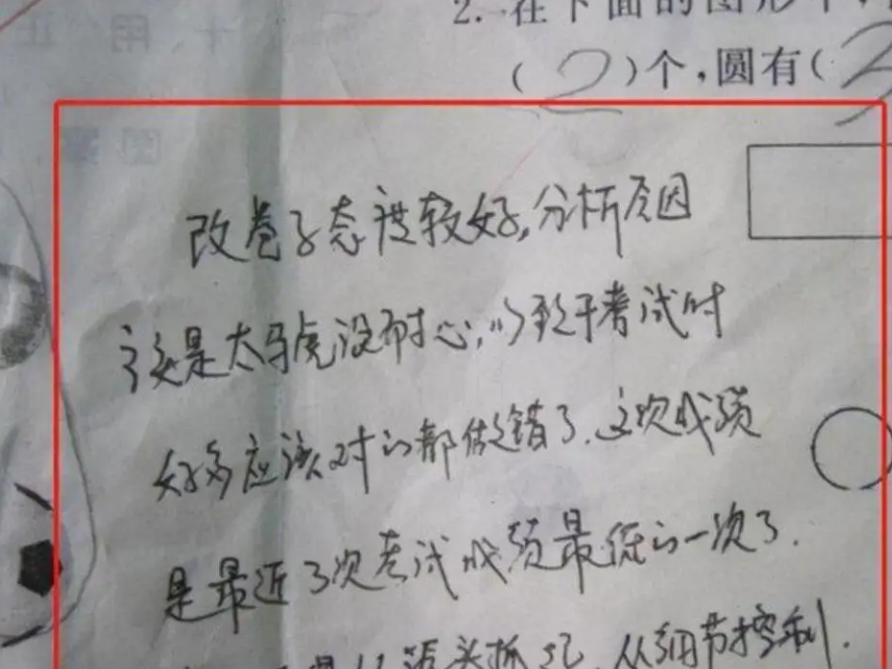 2. 在下面的图形中,
(2)个,圆有(3
改卷子态度较好,分析原因
该是太马虎没耐心,以致于考试时
好多应该对的都做错了.这次成绩
是最近3次考试成绩最低的一次了.
源头抓起,从细节控制.